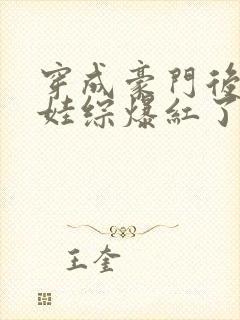 穿成豪門後
娃綜爆紅了
王奎